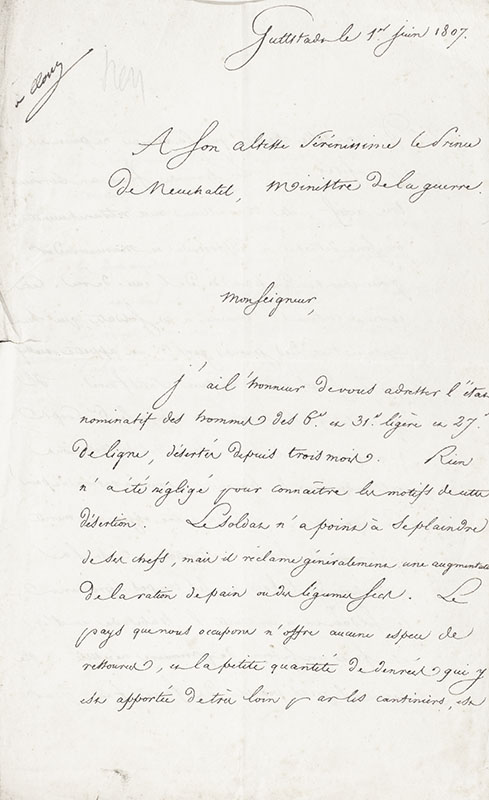 Guttstadt le 1er juin 1807.
A Son altesse Sérénissime le Prince
De Neuchatel, Ministre de la guerre.
Monseigneur,
j'ai l'honneur de vous adresser l'état
nominatif des hommes des 6e et 31e légère et 27e
de ligne, désertés depuis trois mois. Rien
n'a été négligé pour connaître les motifs de cette
désertion. Le Soldat n'a point à se plaindre
de ses chefs, mais il réclame généralement une augmentation
de la ration de pain ou des légumes secs. Le
pays que nous occupons n'offre aucune espece de
ressources, et la petite quantité de denrées qui y
est apportée de très loin par les cantiniers, est